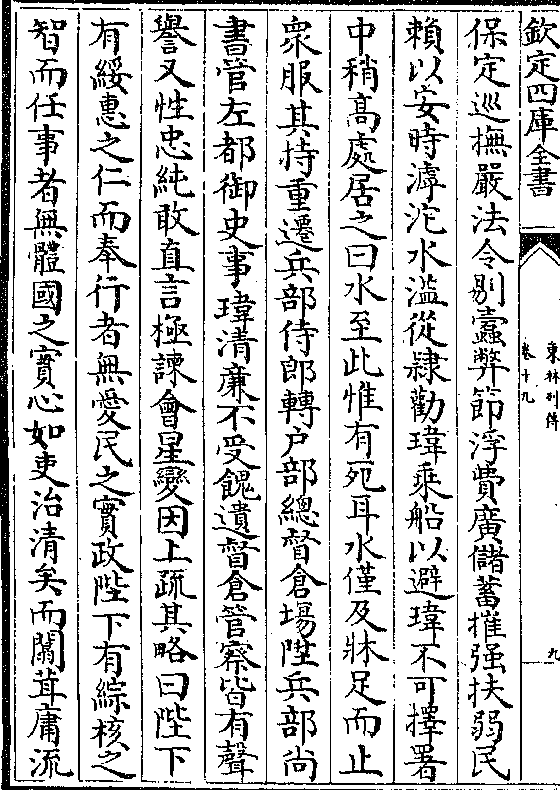 欽定四庫全書
東林列傳
卷十九
九
保定巡撫嚴法令剔蠹弊節浮費廣儲蓄摧强扶弱民
賴以安時滹沱水溢從隸勸瑋乘船以避瑋不可擇署
中稍髙處居之曰水至此惟有死耳水僅及牀足而止
衆服其持重遷兵部侍郎轉户部總督倉場陞兵部尚
書管左都御史事瑋清廉不受餽遺督倉管察皆有聲
譽又性忠純敢直言極諫會星變因上疏其略曰陛下
有綏惠之仁而奉行者無愛民之實政陛下有綜核之
智而任事者無體國之實心如吏治清矣而闒茸庸流